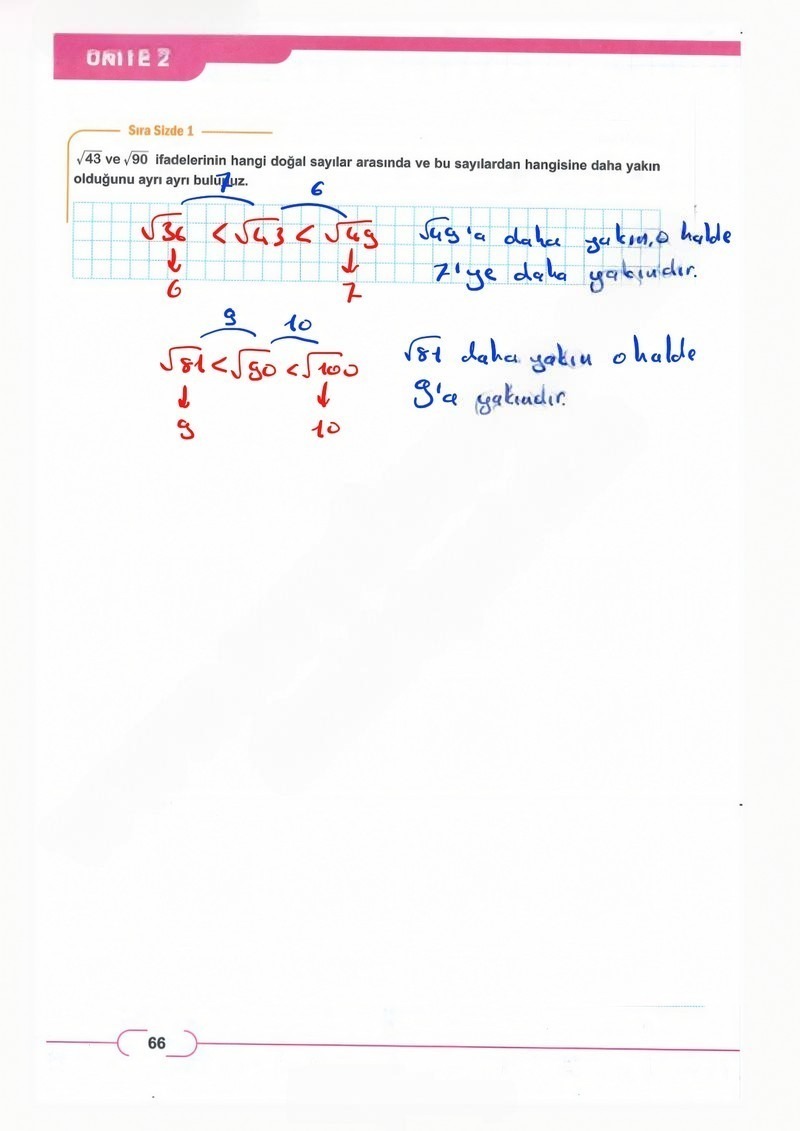 ÜNİTE 2
Sıra Sizde 1
√43 ve √90 ifadelerinin hangi doğal sayılar arasında ve bu sayılardan hangisine daha yakın
olduğunu ayrı ayrı bulunuz.
7 6
√36 < √43 < √49 √49'a daha yakın, o halde
↓ ↓ 7'ye daha yakındır.
6 7
9 10
√81 < √90 < √100 √81 daha yakın o halde
↓ ↓ 9'a yakındır.
9 10
66